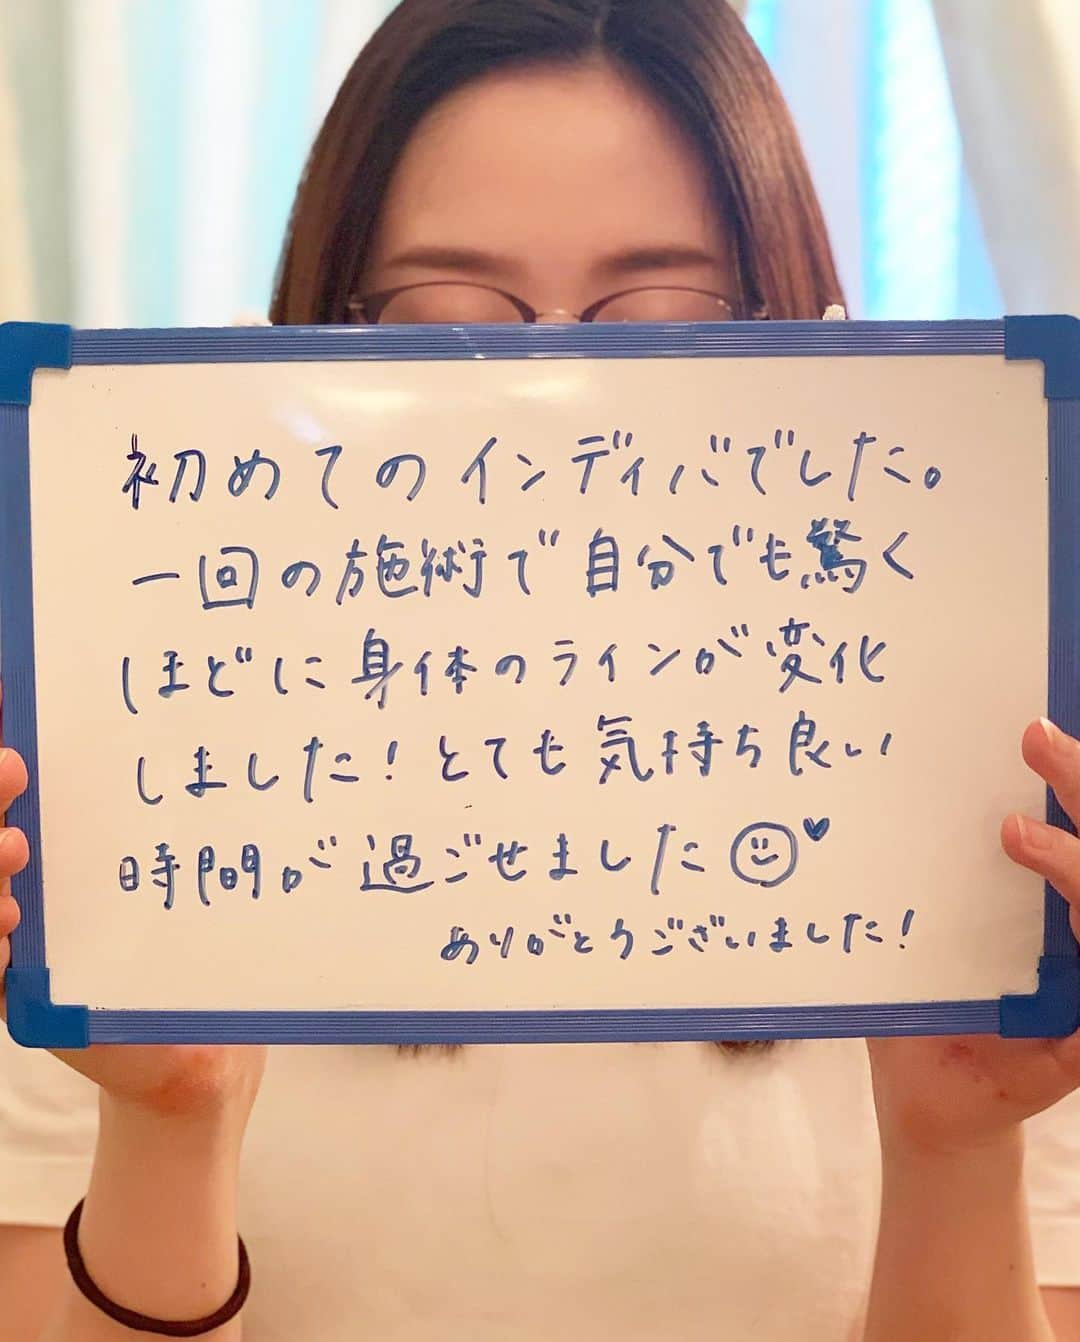 初めてのインディバでした。
一回の施術で自分でも驚く
ほどに身体のラインが変化
しました！とても気持ち良い
時間が過ごせました
ありがとうございました！